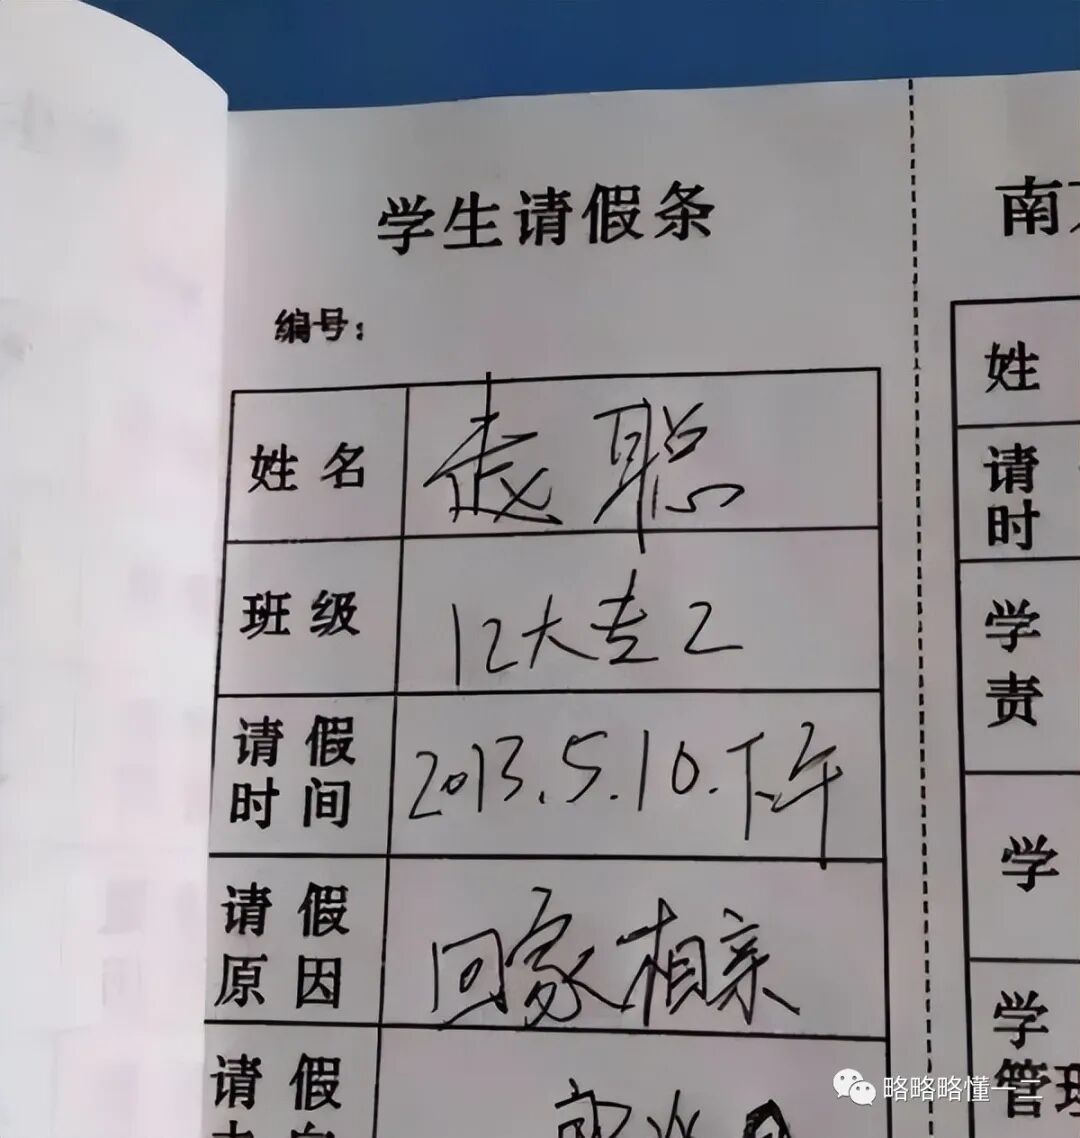 学生请假条
编号：
姓名 赵聪
班级 12大专2
请假时间 2013.5.10.下午
请假原因 回家相亲
请假
南
姓
请
时
学
责
学
学
管理
略略略懂一二